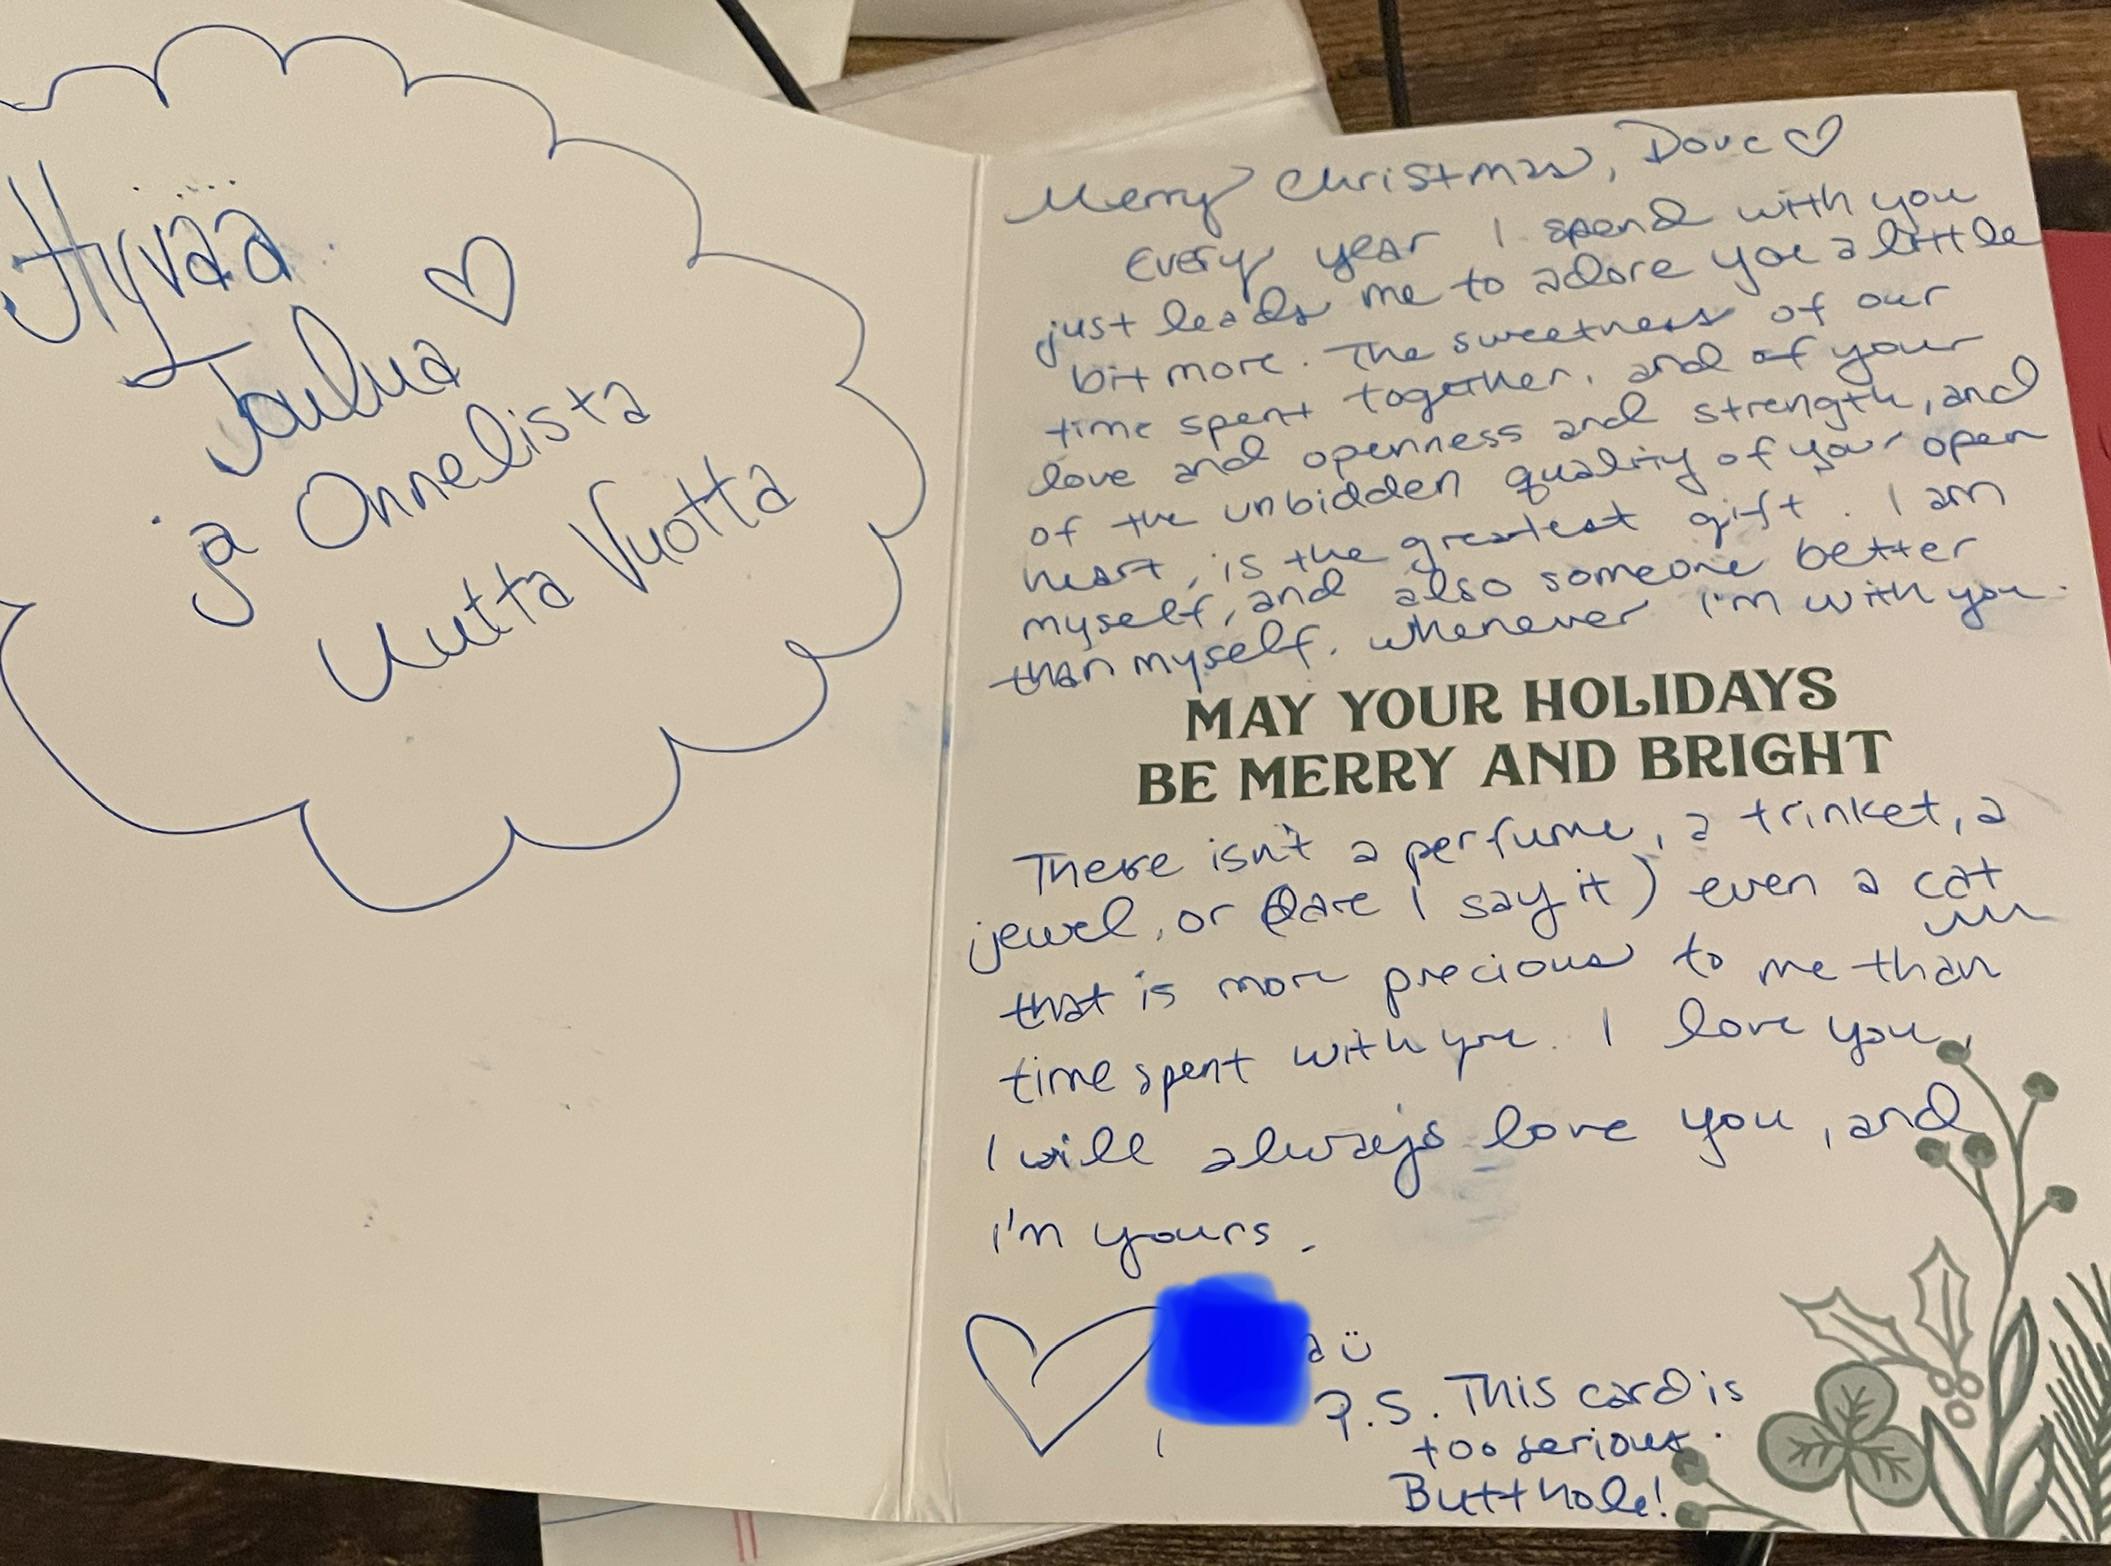 Hyvää
Joulua ♡
ja Onnelista
Uutta Vuotta
Merry Christmas, Dove ♡
Every year I spend with you
just leads me to adore you a little
bit more. The sweetness of our
time spent together, and of your
love and openness and strength, and
of the unbidden quality of your open
heart, is the greatest gift. I am
myself, and also someone better
than myself, whenever I'm with you.
MAY YOUR HOLIDAYS
BE MERRY AND BRIGHT
There isn't a perfume, a trinket, a
jewel, or (dare I say it) even a cat
that is more precious to me than
time spent with you. I love you,
I will always love you, and
I'm yours.
a ü
P.S. This card is
too serious.
Butthole!